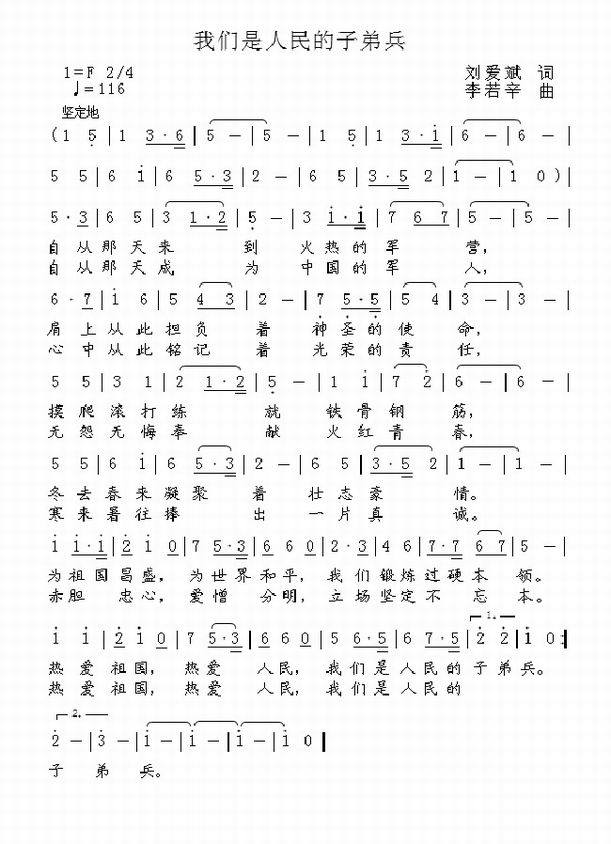 我们是人民的子弟兵
1=F 2/4 刘爱斌 词
♩=116 李若辛 曲
坚定地
(1 5|1 3·6|5 -|5 -|1 5|1 3·i|6 -|6 -|
5 5|6 i|6 5·3|2 -|6 5|3·5 2|1 -|1 0)|
5·3|6 5|3 1·2|5 -|3 i·i|7 6 7|5 -|5 -|
自从那天来 到 火热的军 营,
自从那天成 为 中国的军 人,
6·7|i 6|5 4 3|2 -|7 5·5|5 4|3 -|3 -|
肩上从此担负 着 神圣的使 命,
心中从此铭记 着 光荣的责 任,
5 5|3 1|2 1·2|5 -|1 i|7 2|6 -|6 -|
摸爬滚打练 就 铁骨钢 筋,
无怨无悔奉 献 火红青 春,
5 5|6 i|6 5·3|2 -|6 5|3·5 2|1 -|1 -|
冬去春来凝聚 着 壮志豪 情。
寒来暑往捧 出 一片真 诚。
i i·i|2 i 0|7 5·3|6 6 0|2·3|4 6|7·7 6 7|5 -|
为祖国昌盛, 为世界和平, 我们锻炼过硬本 领。
赤胆 忠心, 爱憎 分明, 立场坚定不 忘 本。
1.
i i|2 i 0|7 5·3|6 6 0|5 6·5|6 7·5|2 2|i 0:|
热爱 祖国, 热爱 人民, 我们是人民的子弟兵。
热爱 祖国, 热爱 人民, 我们是人民的
2.
2 -|3 -|i -|i -|i -|i -|i 0|
子 弟 兵。